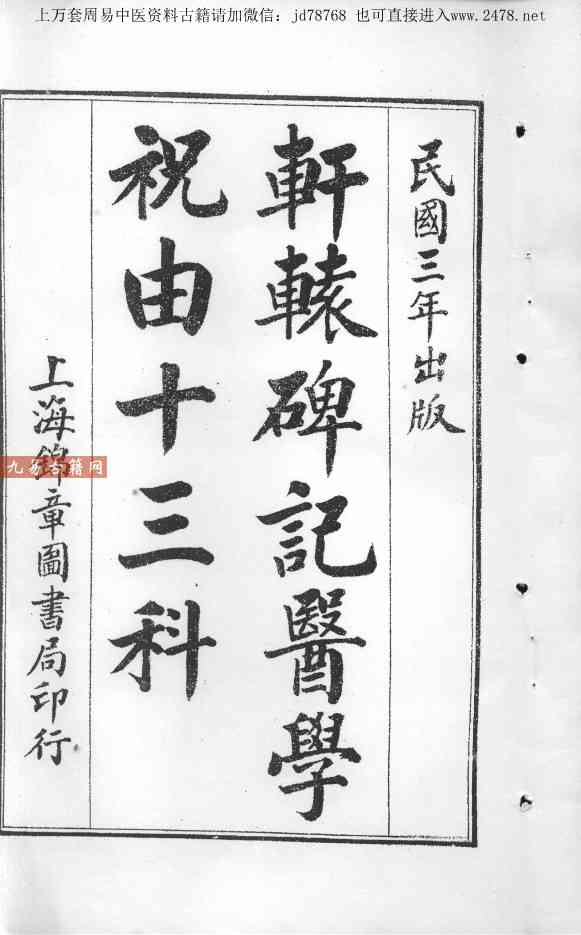 上万套周易中医资料古籍请加微信：jd78768 也可直接进入www.2478.net
民國三年出版
軒轅碑記醫學
祝由十三科
上海錦章圖書局印行
九易古籍网